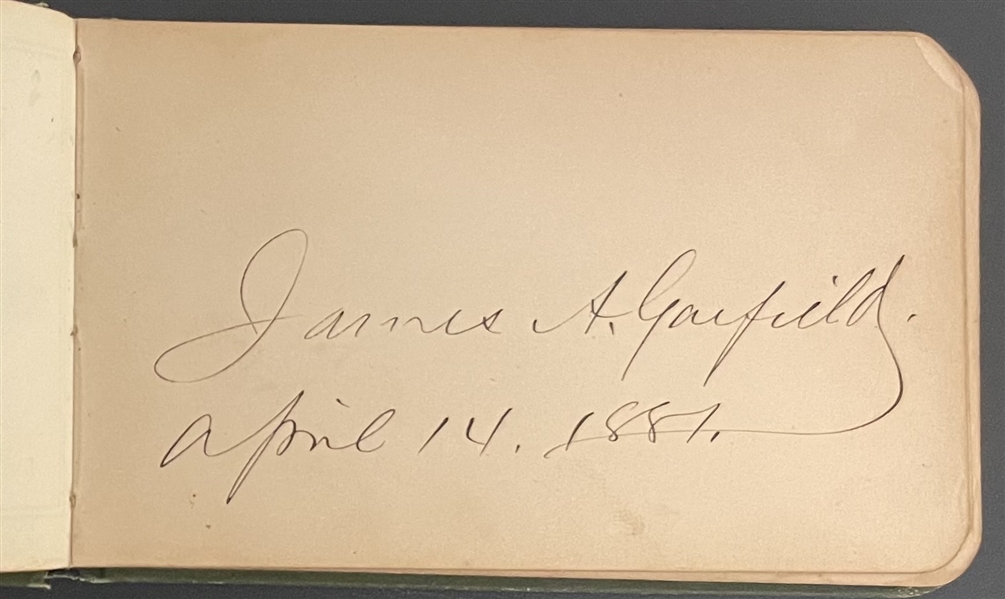 James A. Garfield.
April 14. 1881.